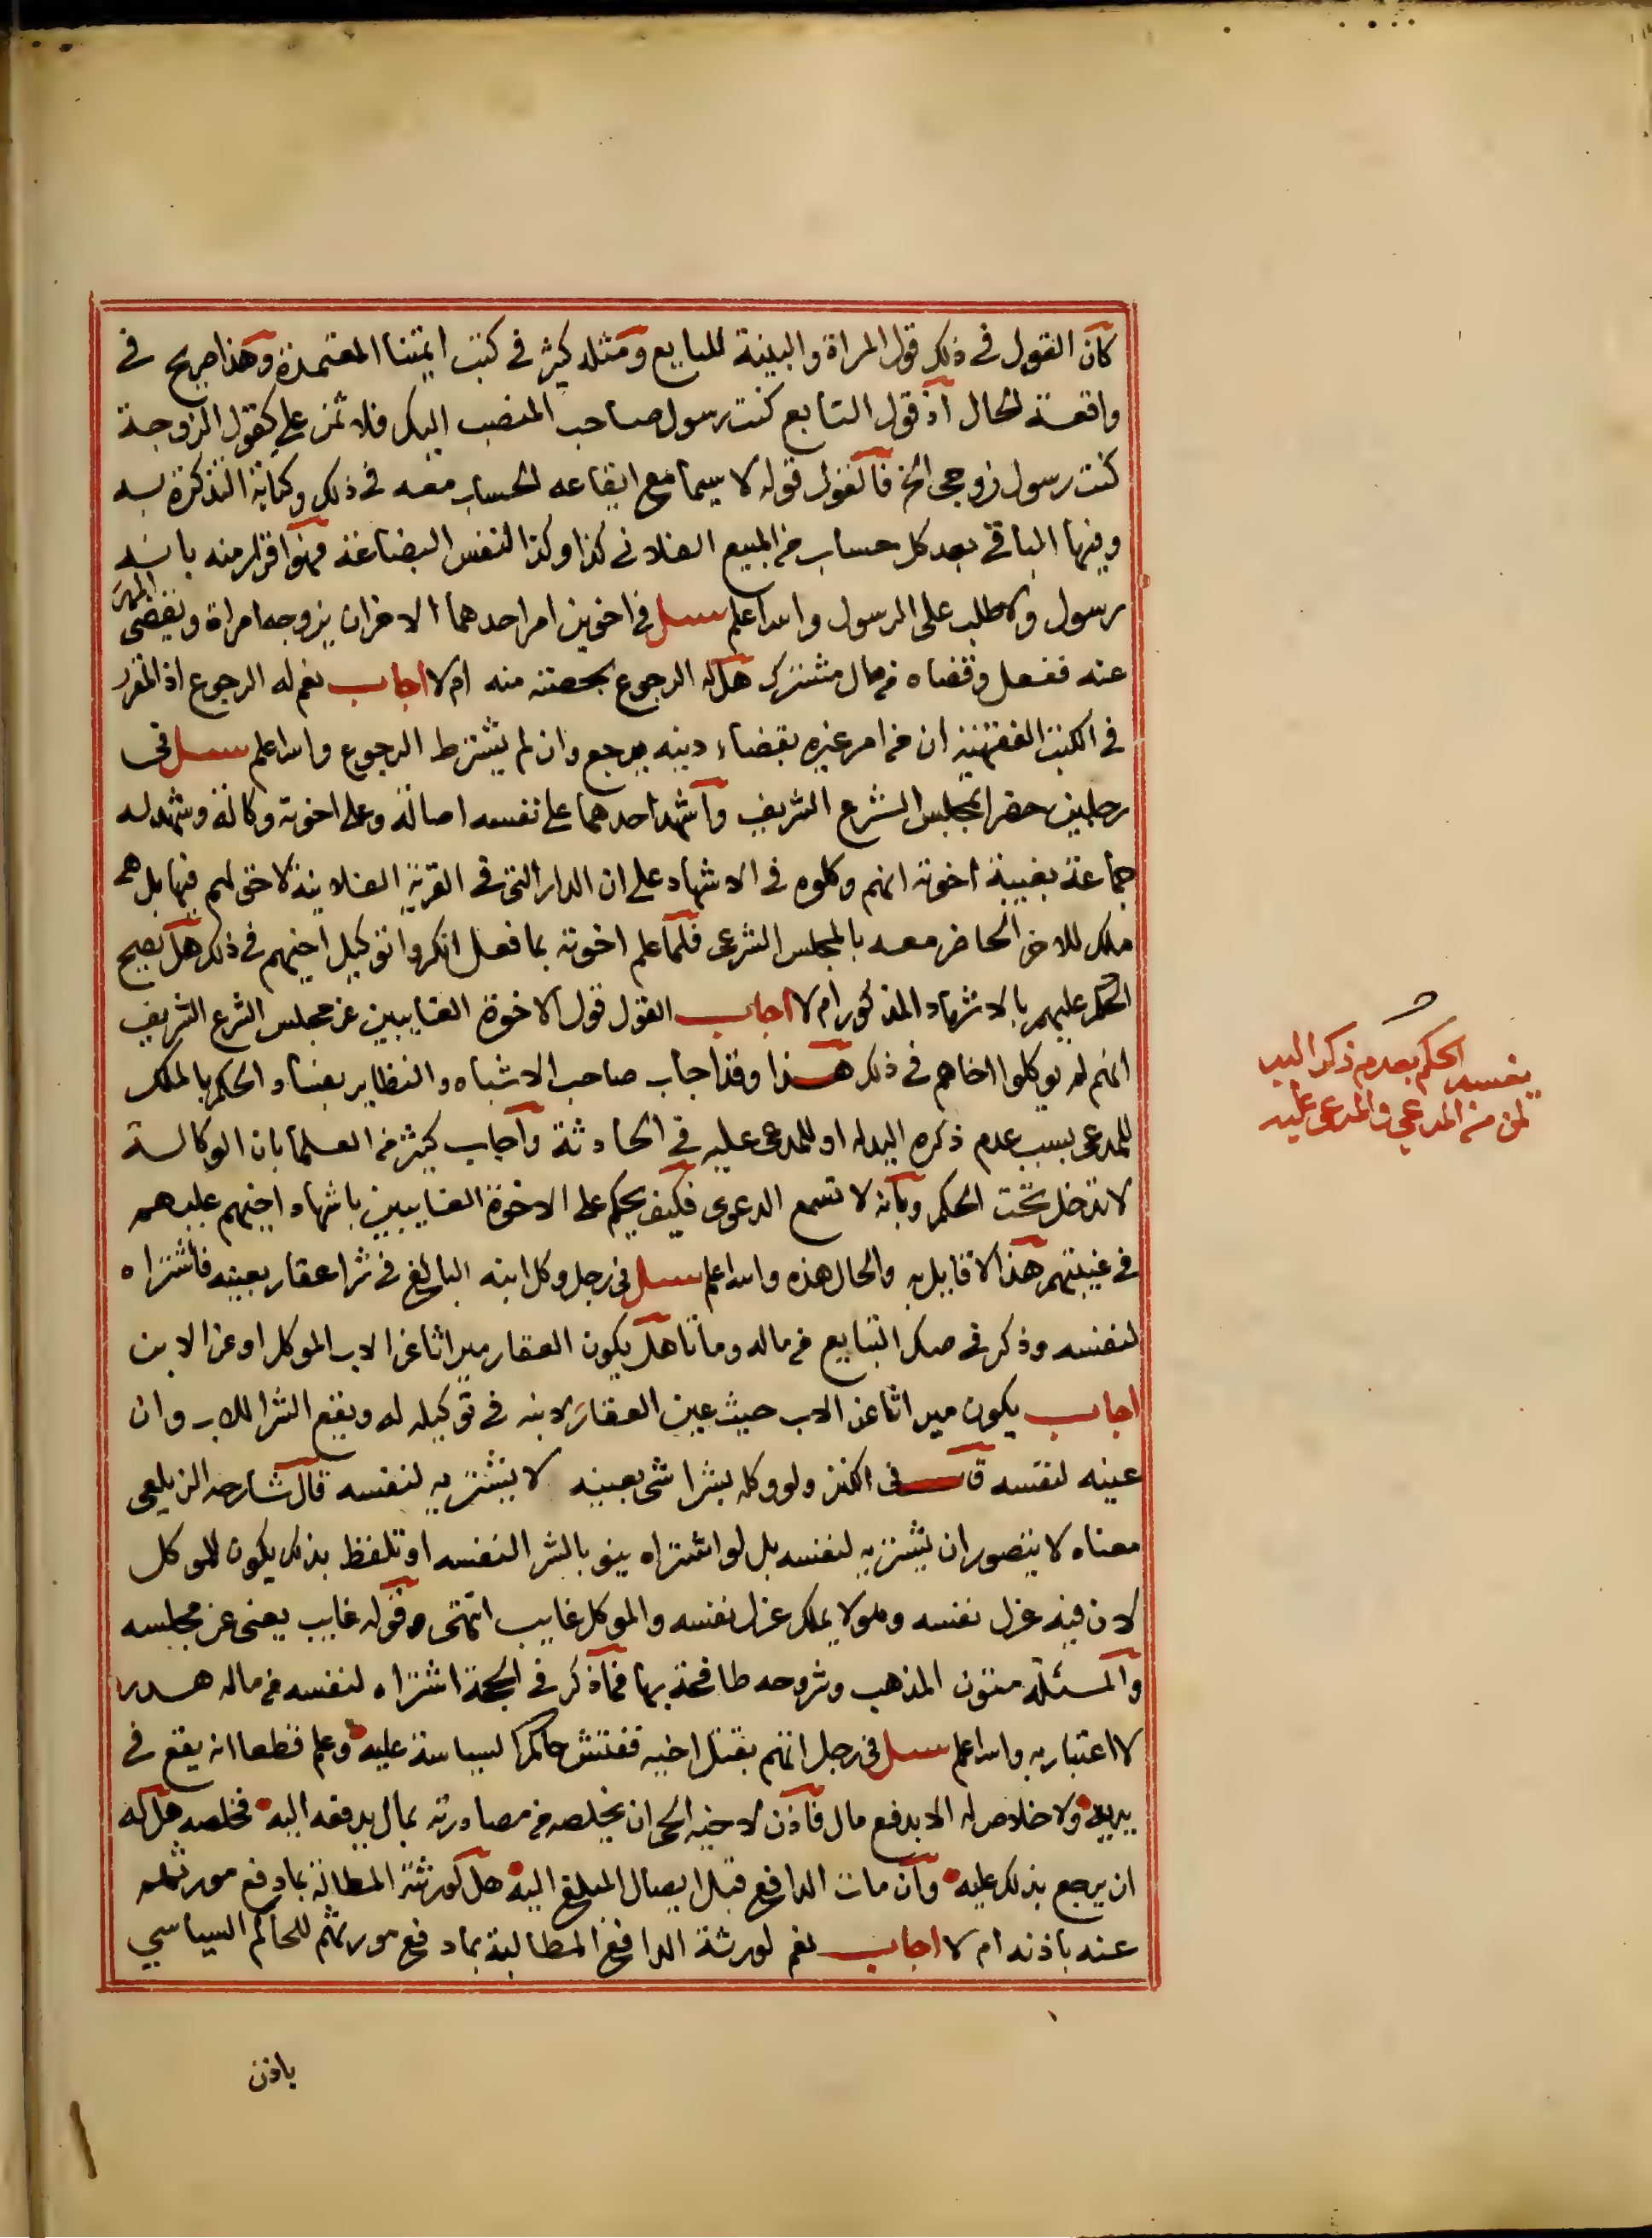 كان القول في ذلك قول المراة والبينة للبايع ومثله كثير في كتب ايمتنا المعتمدة وهذا صريح في
واقعة الحال اذ قول التابع كنت رسول صاحب المنصب اليك فلا ثمن علي كقول الزوجة
كنت رسول زوجي الخ فالقول قوله لا سيما مع ايقاعه الحساب معه في ذلك وكتابة التذكرة به
وفيها الباقي بعد كل حساب من المبيع الفلاني كذا وكذا لنفس البضاعة فهو اقرار منه بانه
رسول ولا طلب على الرسول والله اعلم سيل في اخوين امر احدهما الاخر ان يزوجه امراة ويقضي المهر
عنه ففعل وقضاه من مال مشترك هل له الرجوع بحصته منه ام لا اجاب نعم له الرجوع اذ المقرر
في الكتب الفقهية ان من امر غيره بقضاء دينه يرجع وان لم يشترط الرجوع والله اعلم سيل في
رجلين حضرا لمجلس الشرع الشريف وأشهد احدهما على نفسه اصالة وعلى اخوته وكالة وشهد له
جماعة بغيبة اخوته انهم وكلوه في الاشهاد على ان الدار التي في القرية الفلانية لا حق لهم فيها بل هي
ملك للاخ الحاضر معه بالمجلس الشرعي فلما علم اخوته بما فعل انكروا توكيل اخيهم في ذلك هل يصح
الحكم عليهم بالاشهاد المذكور ام لا اجاب القول قول الاخوة الغايبين عن مجلس الشرع الشريف
انهم لم يوكلوا اخاهم في ذلك هذا وقد اجاب صاحب الاشباه والنظاير بفساد الحكم بالملك
للمدعي بسبب عدم ذكره اليد له او للمدعى عليه في الحادثة وأجاب كثير من العلما بان الوكالة
لا تدخل تحت الحكم وبانه لا تسمع الدعوى فكيف يحكم على الاخوة الغايبين باشهاد اخيهم عليهم
في غيبتهم هذا لا قايل به والحال هذه والله اعلم سيل في رجل وكل ابنه البالغ في شرا عقار بعينه فاشتراه
لنفسه وذكر في صك التبايع من ماله وماتا هل يكون العقار ميراثا عن الاب الموكل او عن الابن
اجاب يكون ميراثا عن الاب حيث عين العقار لابنه في توكيله له ويقع الشرا للاب وان
عينه لنفسه قال في الكنز ولو وكله بشرا شي بعينه لا يشتريه لنفسه قال شارحه الزيلعي
معناه لا يتصور ان يشتريه لنفسه بل لو اشتراه ينوي بالشرا لنفسه او تلفظ بذلك يكون للموكل
لان فيه عزل نفسه وهو لا يملك عزل نفسه والموكل غايب انتهى وقوله غايب يعني عن مجلسه
والمسئلة متون المذهب وشروحه طافحة بها فما ذكر في الحجة اشتراه لنفسه من ماله هدر
لا اعتبار به والله اعلم سيل في رجل اتهم بقتل اخيه ففتش حاكم السياسة عليه وعلم قطعا انه يقع في
يديه ولا خلاص له الا بدفع مال فأذن لاخيه الحي ان يخلصه من مصادرته بمال يدفعه اليه فخلصه هل له
ان يرجع بذلك عليه وان مات الدافع قبل ايصال المبلغ اليه هل لورثته المطالبة بما دفع مورثهم
عنه باذنه ام لا اجاب نعم لورثة الدافع المطالبة بما دفع مورثهم للحاكم السياسي
باذن
الحكم بعدم ذكر اليد
يفسد
لمن من المدعي والمدعى عليه